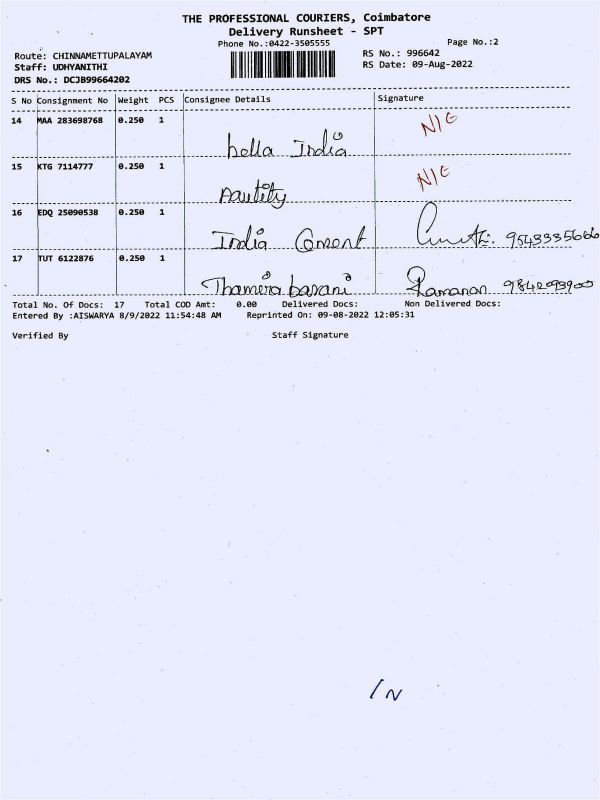 THE PROFESSIONAL COURIERS, Coimbatore
Delivery Runsheet - SPT
Phone No.:0422-3505555
Page No.:2
Route: CHINNAMETTUPALAYAM
RS No.: 996642
Staff: UDHYANITHI
RS Date: 09-Aug-2022
DRS No.: DCJB99664202
S No Consignment No Weight PCS Consignee Details Signature
14 MAA 283698768 0.250 1
hella India
15 KTG 7114777 0.250 1
16 EDQ 25090538 0.250 1
India Cement
17 TUT 6122876 0.250 1
Thamira barani Ramanan
Total No. Of Docs: 17 Total COD Amt: 0.00 Delivered Docs: Non Delivered Docs:
Entered By :AISWARYA 8/9/2022 11:54:48 AM Reprinted On: 09-08-2022 12:05:31
Verified By Staff Signature